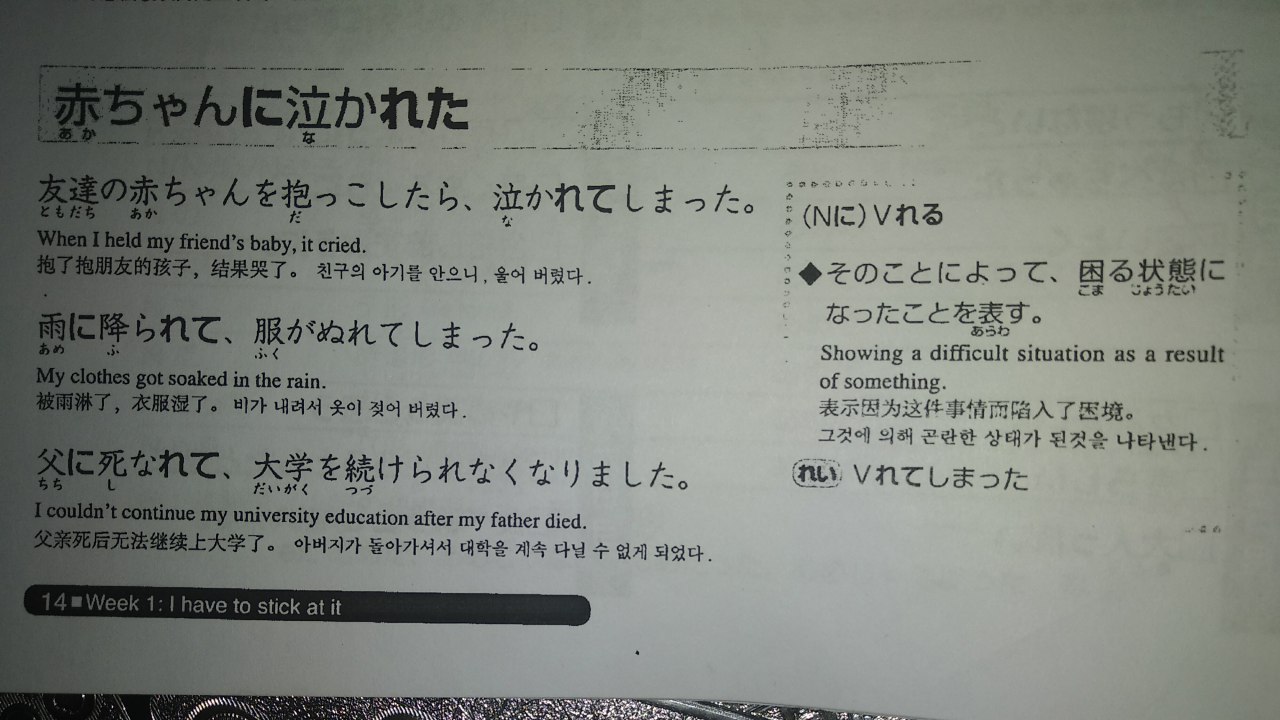 赤ちゃんに泣かれた
あか な
友達の赤ちゃんを抱っこしたら、泣かれてしまった。
ともだち あか だ な
When I held my friend's baby, it cried.
抱了抱朋友的孩子，结果哭了。 친구의 아기를 안으니, 울어 버렸다.
雨に降られて、服がぬれてしまった。
あめ ふ ふく
My clothes got soaked in the rain.
被雨淋了，衣服湿了。 비가 내려서 옷이 젖어 버렸다.
父に死なれて、大学を続けられなくなりました。
ちち し だいがく つづ
I couldn't continue my university education after my father died.
父亲死后无法继续上大学了。 아버지가 돌아가셔서 대학을 계속 다닐 수 없게 되었다.
(Nに) Vれる
◆そのことによって、困る状態に
こま じょうたい
なったことを表す。
あらわ
Showing a difficult situation as a result
of something.
表示因为这件事情而陷入了困境。
그것에 의해 곤란한 상태가 된것을 나타낸다.
れい Vれてしまった
14■Week 1: I have to stick at it